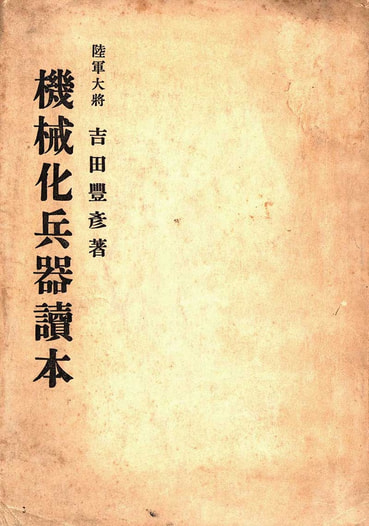 陸軍大將 吉田豐彦著
機械化兵器讀本